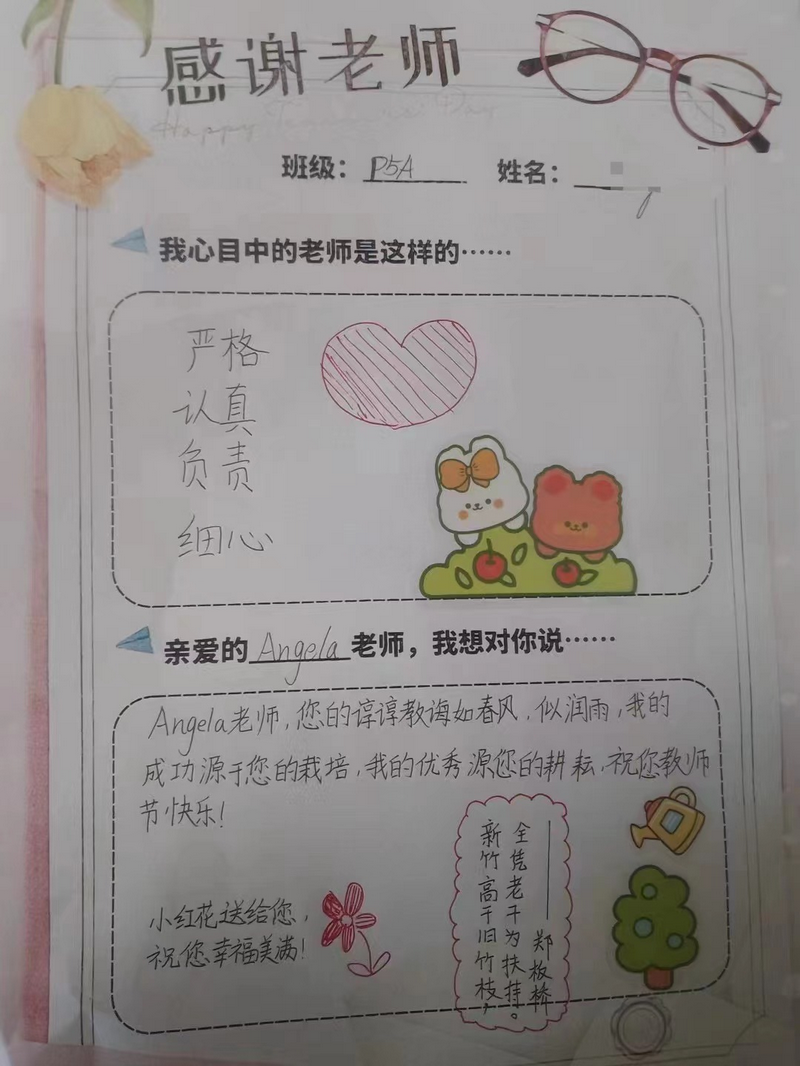 感谢老师
Happy Teachers' Day
班级：P5A 姓名：
我心目中的老师是这样的……
严格
认真
负责
细心
亲爱的Angela老师，我想对你说……
Angela老师，您的谆谆教诲如春风，似润雨，我的
成功源于您的栽培，我的优秀源您的耕耘，祝您教师
节快乐！
小红花送给您，
祝您幸福美满！
新竹高于旧竹枝，
全凭老干为扶持。
——郑板桥